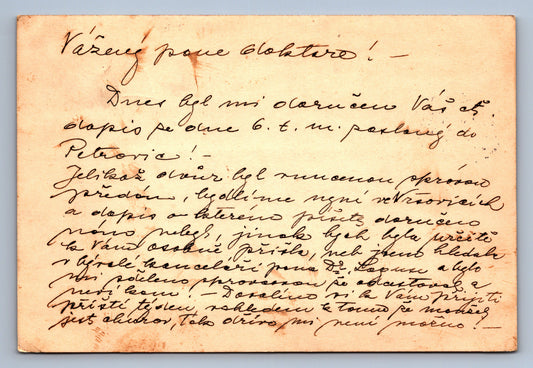 Vážený pane doktore! –
Dnes byl mi doručen Váš ct.
dopis ze dne 6. t. m. poslaný do
Petrovic! –
Jelikož dvůr byl vnucenou správou
předán, bydlíme nyní ve Vršovicích
a dopis o kterém píšete doručeno
náno nebyl, jinak bych byla určitě
k Vám osobně přišla, neb jsem hledala
v bývalé kanceláři pana Dr. a bylo
mi sděleno že odcestoval a
není! – Dovolím si k Vám přijíti
příští týden, vzhledem k tomu že manžel
jest chorov, tak dříve mi není možno! –